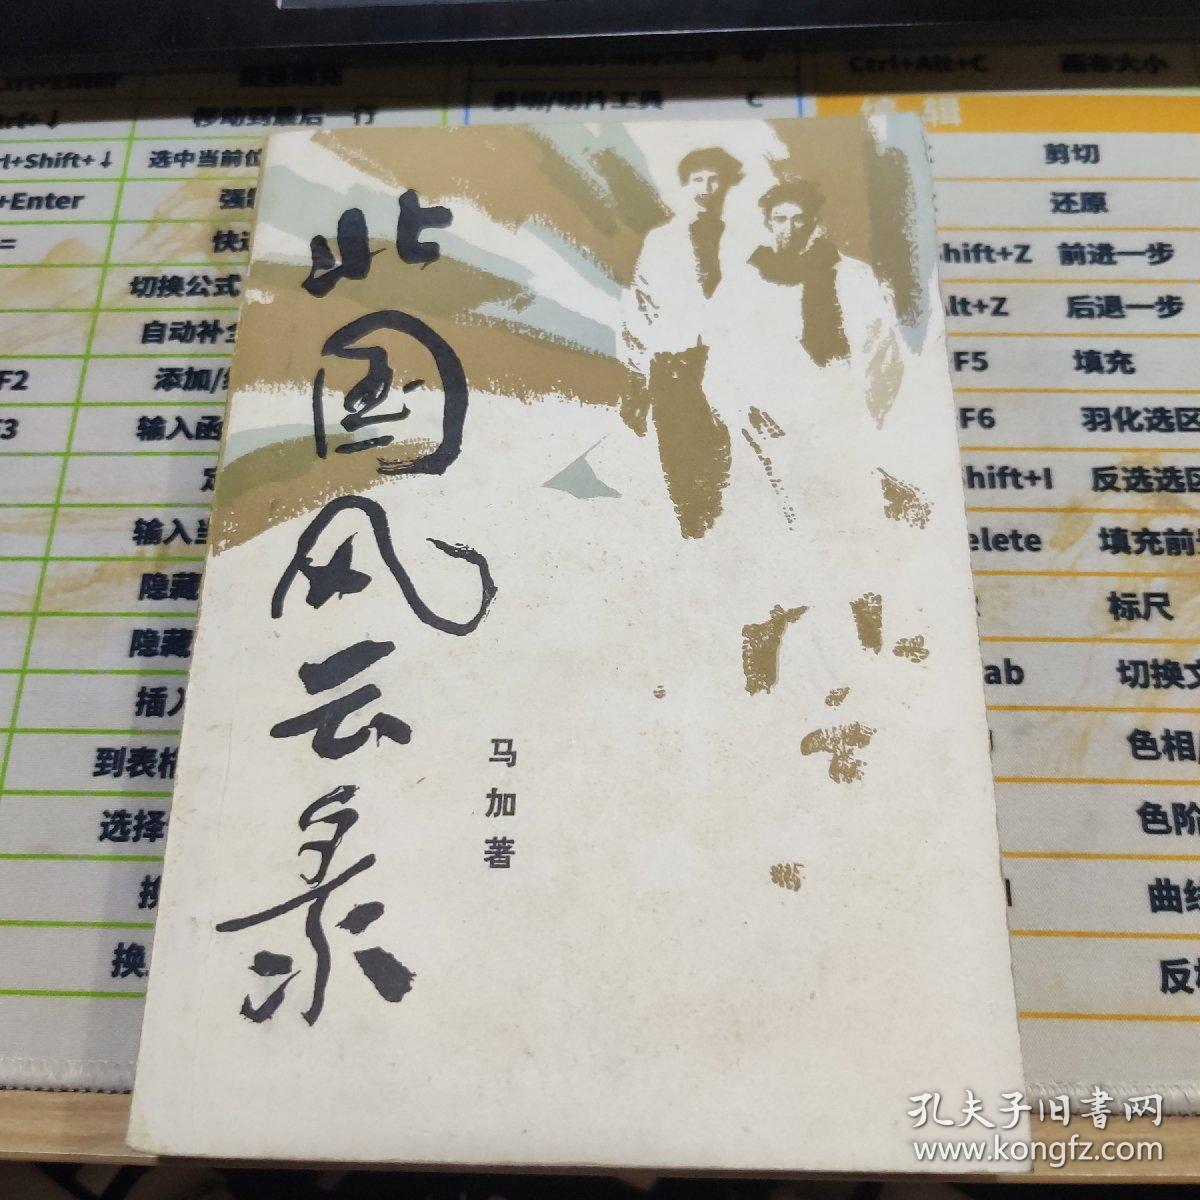 北国风云录
马加著
Ctrl+Alt+C 画布大小
移动到最后一行
剪切/切片工具 C
编辑
+Shift+↓ 选中当前
剪切
+Enter
还原
=
Shift+Z 前进一步
切换公式
Alt+Z 后退一步
自动补全
F2 添加/
F5 填充
F3 输入函
F6 羽化选区
Shift+I 反选选区
输入当
elete 填充前
隐藏
标尺
隐藏
ab 切换
插入
色相
到表格
选择
色阶
曲线
换
反相
孔夫子旧书网
www.kongfz.com